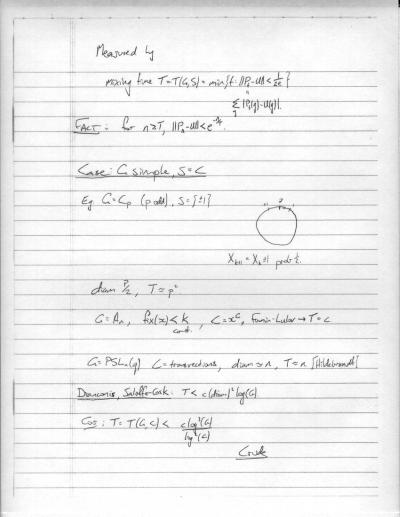 Measured by
mixing time T = T(G,S) = min{t: ||P_t - U|| < 1/2e}
"
Σ |P_t(g) - U(g)|.
FACT: for n ≥ T, ||P_n - U|| < e^{-n/T}.
Case: G simple, S = C
Eg G = C_p (p odd), S = {±1}
X_{k+1} = X_k ± 1 prob ½.
diam p/2, T ≈ p²
G = A_n, fix(x) < k, C = x^G, Fomin-Lulov → T = c
const.
G = PSL_n(q) C = transvections, diam ≈ n, T ≈ n [Hildebrand]
Diaconis, Saloff-Coste: T < c(diam)² log|G|
Cor: T = T(G,C) < c log³|G| / log²|C|
Crude